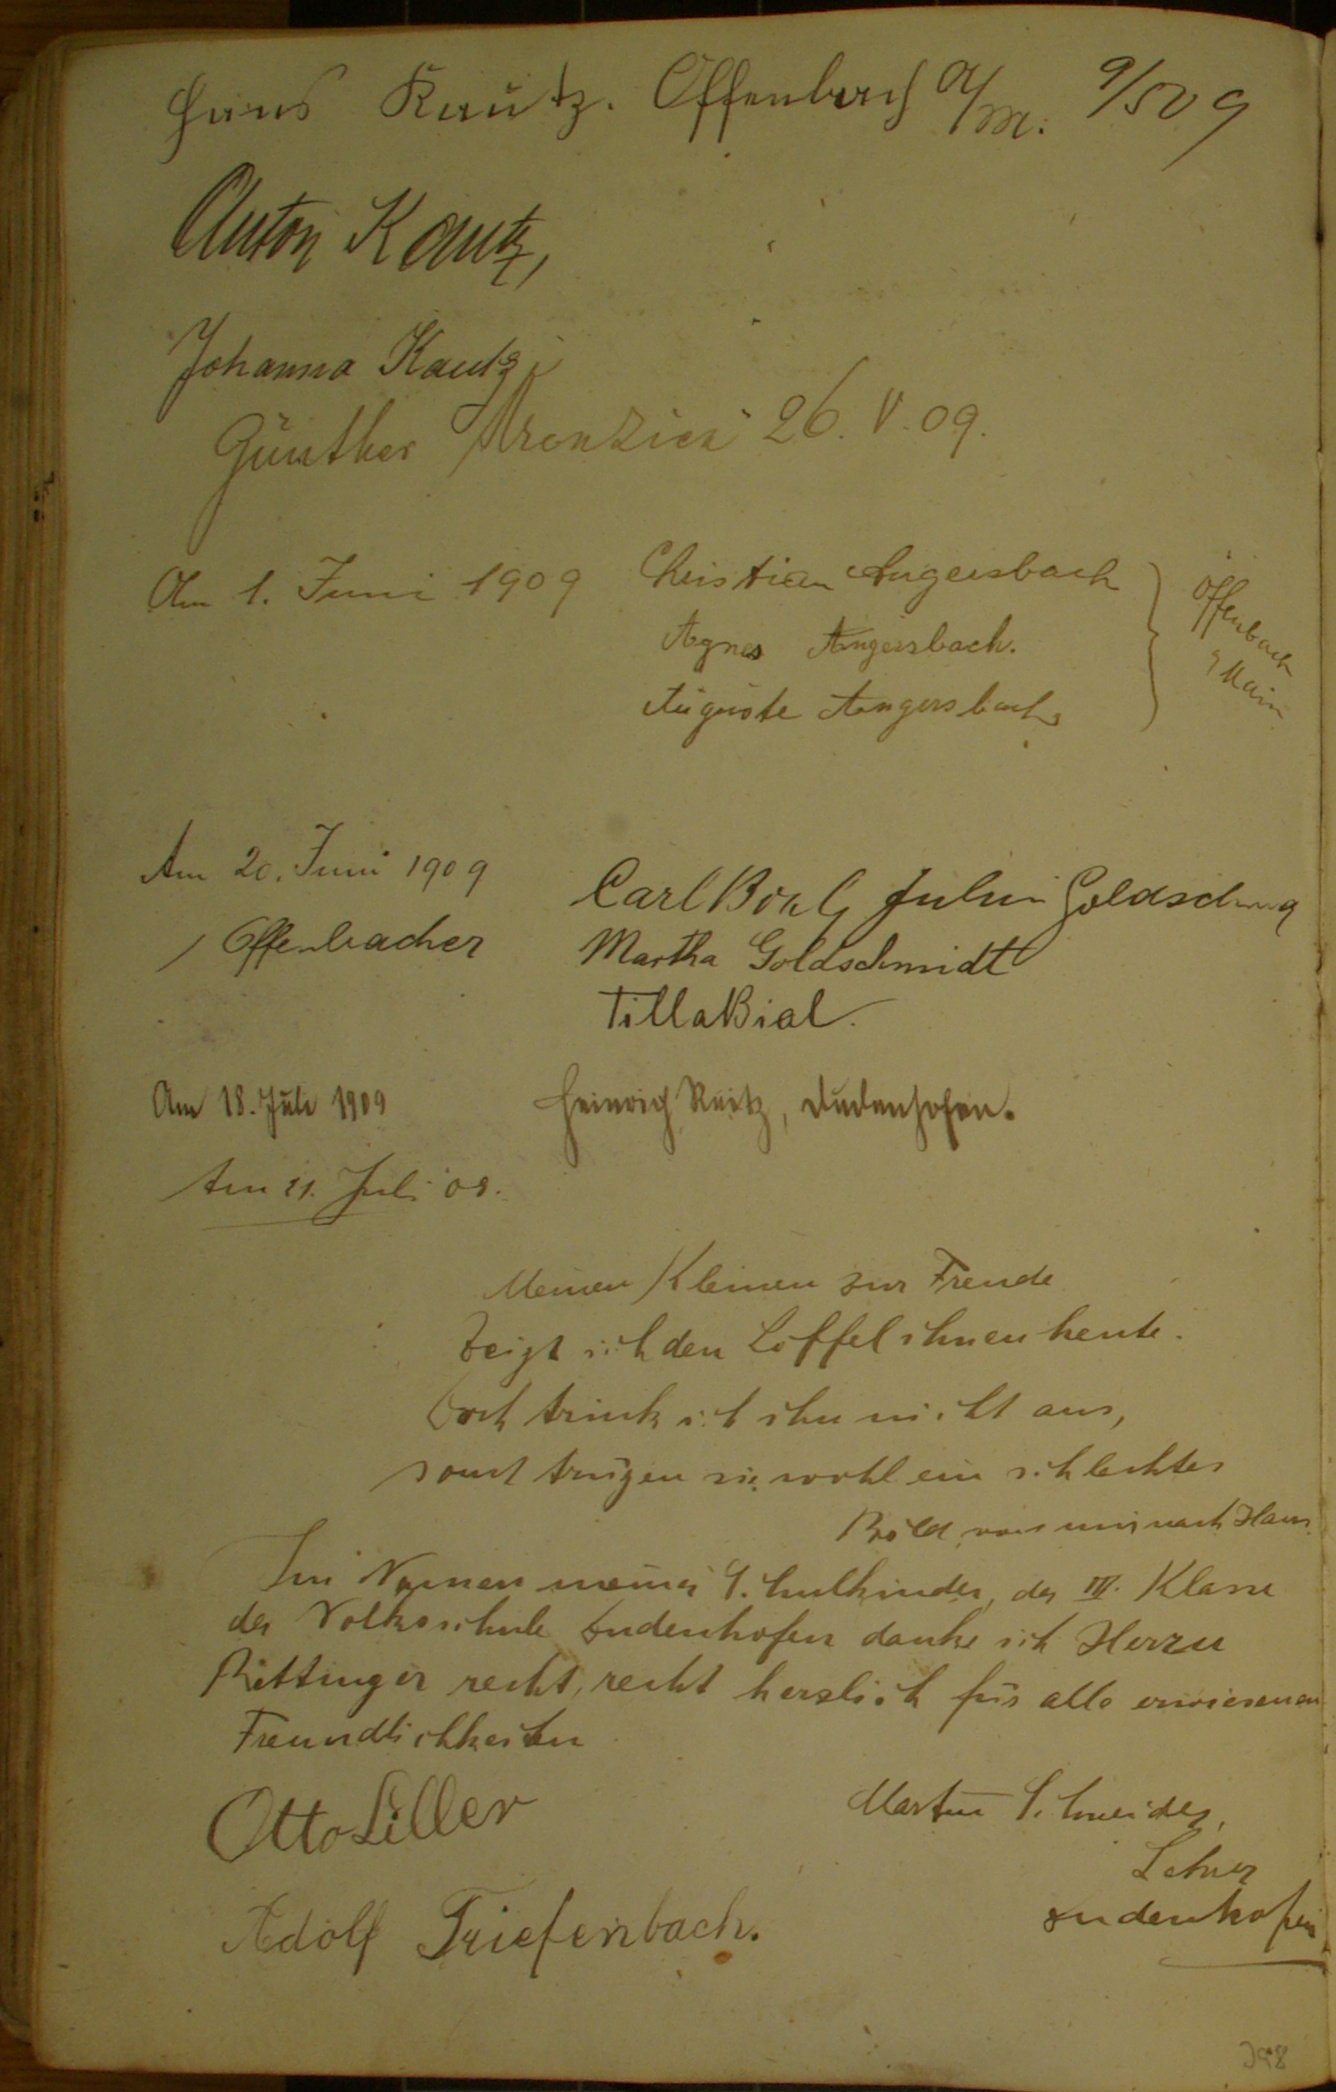 Hans Kautz. Offenbach a/M. 9/5 09
Anton Kautz,
Johanna Kautz
Günther 26. V. 09.
Am 1. Juni 1909 Christian Angersbach
Agnes Angersbach.
Auguste Angersbach
Offenbach
a Main
Am 20. Juni 1909
Offenbacher
Carl Julius
Martha Goldschmidt
Tilla Bial.
Am 18. Juli 1909 Heinrich Reitz, Dudenhofen.
Am 21. Juli 09.
Meinen Kleinen zur Freude
Zeigt ich den Löffel ihnen heute.
Doch trink ich ihn nicht aus,
sonst trügen sie wohl ein schlechtes
Bild von mir nach Haus.
Im Namen meiner Schulkinder, der III. Klasse
der Volksschule Dudenhofen danke ich Herrn
Rittinger recht, recht herzlich für alle erwiesenen
Freundlichkeiten
Martin Schneider,
Lehrer
Dudenhofen
Otto Liller
Adolf Triefenbach.
398